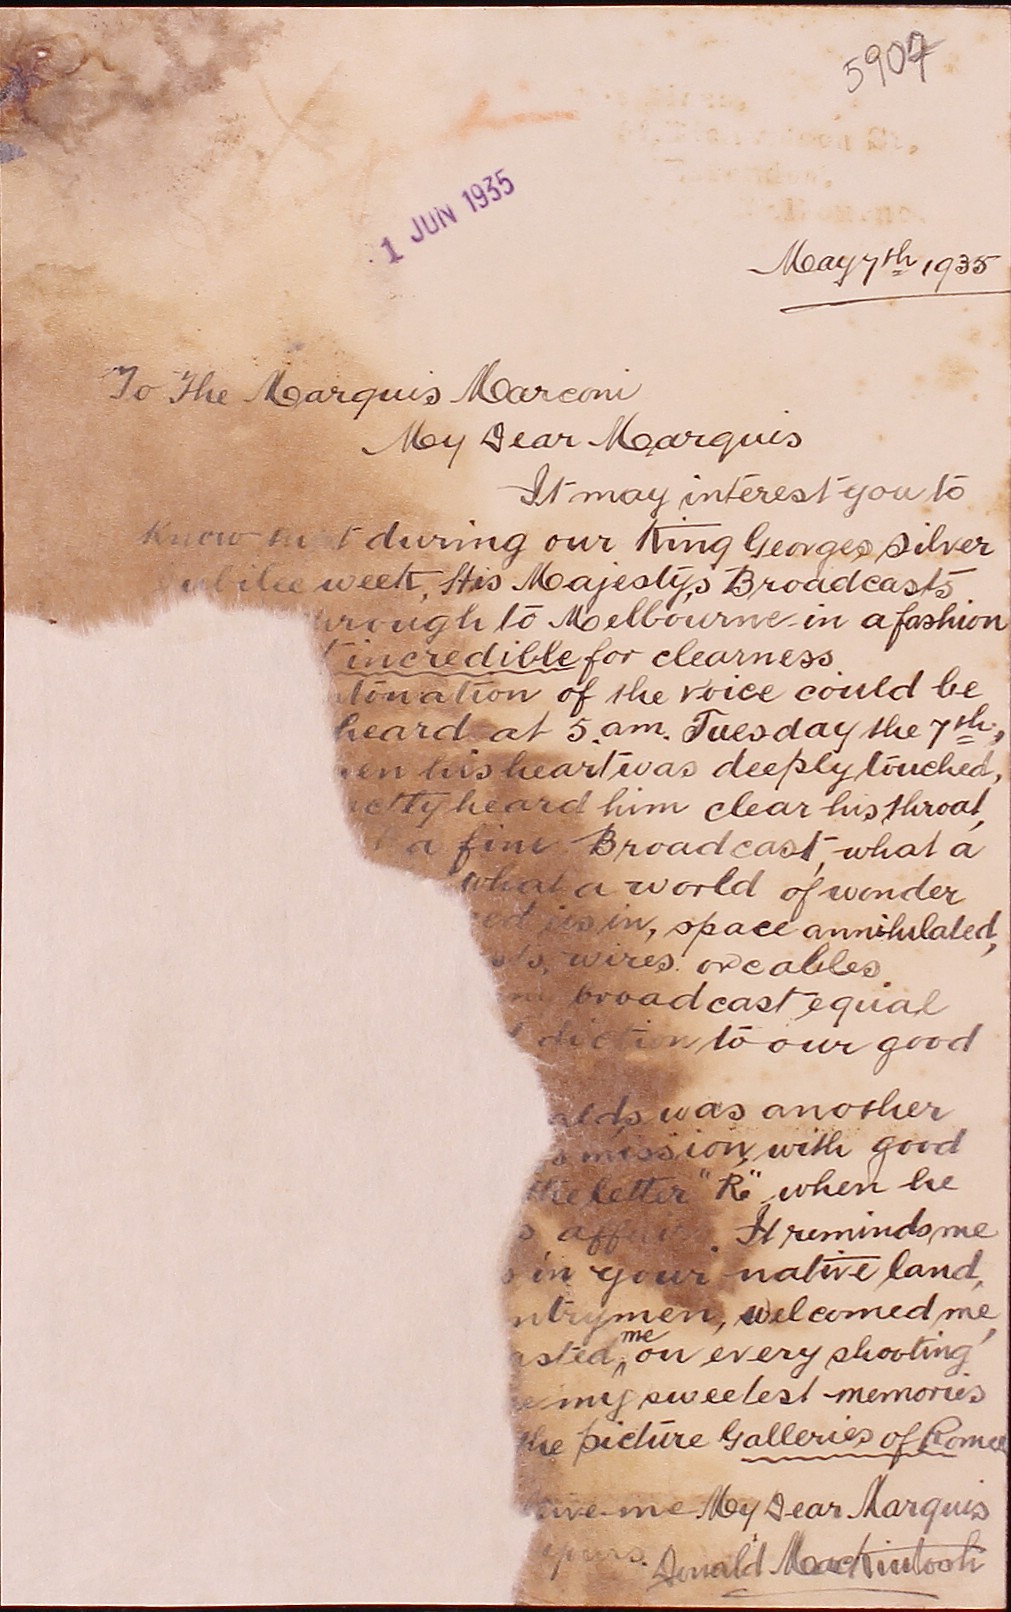 5904
1 JUN 1935
May 7th 1935
To The Marquis Marconi
My Dear Marquis
It may interest you to
Know that during our King Georges, Silver
Jubilee week, His Majesty,s Broadcasts
hrough to Melbourne in a fashion
t incredible for clearness
tonation of the voice could be
heard at 5.am. Tuesday the 7th,
en his heart was deeply touched,
ctly heard him clear his throat,
a fine Broadcast, what a
what a world of wonder
ed us in, space annihulated,
sts, wires or cables
broadcast equal
diction to our good
alds was another
mission, with good
the letter "R", when he
s affairs. It reminds me
s in your native land,
ntrymen, welcomed me,
asted, me on every shooting
e my sweetest memories
the picture Galleries of Rome
ieve me My Dear Marquis
yours. Donald Mackintosh